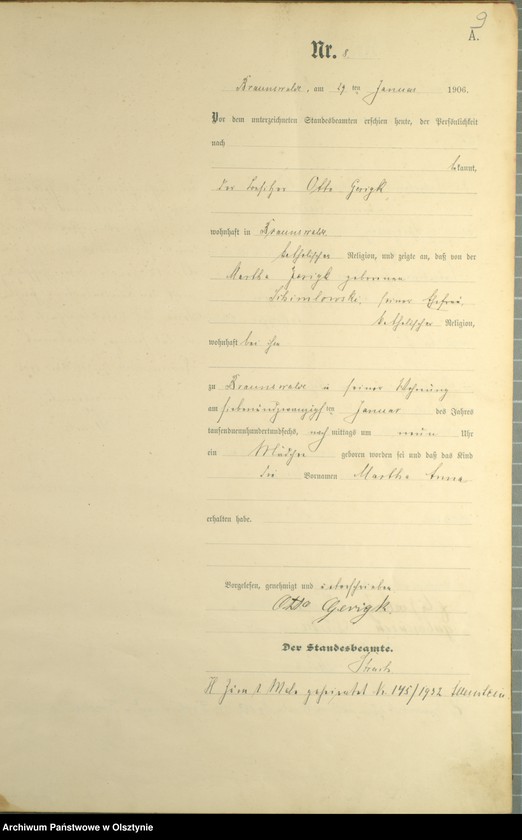 9
A.
Nr. 8.
Braunswalde, am 29 ten Januar 1906.
Vor dem unterzeichneten Standesbeamten erschien heute, der Persönlichkeit
nach
bekannt,
der Besitzer Otto Gerigk
wohnhaft in Braunswalde
katholischer Religion, und zeigte an, daß von der
Martha Gerigk geborenen
seiner Ehefrau
katholischer Religion,
wohnhaft bei ihm
zu Braunswalde in seiner Wohnung
am siebenundzwanzigsten Januar des Jahres
tausendneunhundertundsechs, nachmittags um neun Uhr
ein Mädchen geboren worden sei und daß das Kind
die Vornamen Martha Anna
erhalten habe.
Vorgelesen, genehmigt und unterschrieben
Otto Gerigk.
Der Standesbeamte.
Zum 1 Male geheiratet Nr 145/1932 Allenstein
Archiwum Państwowe w Olsztynie